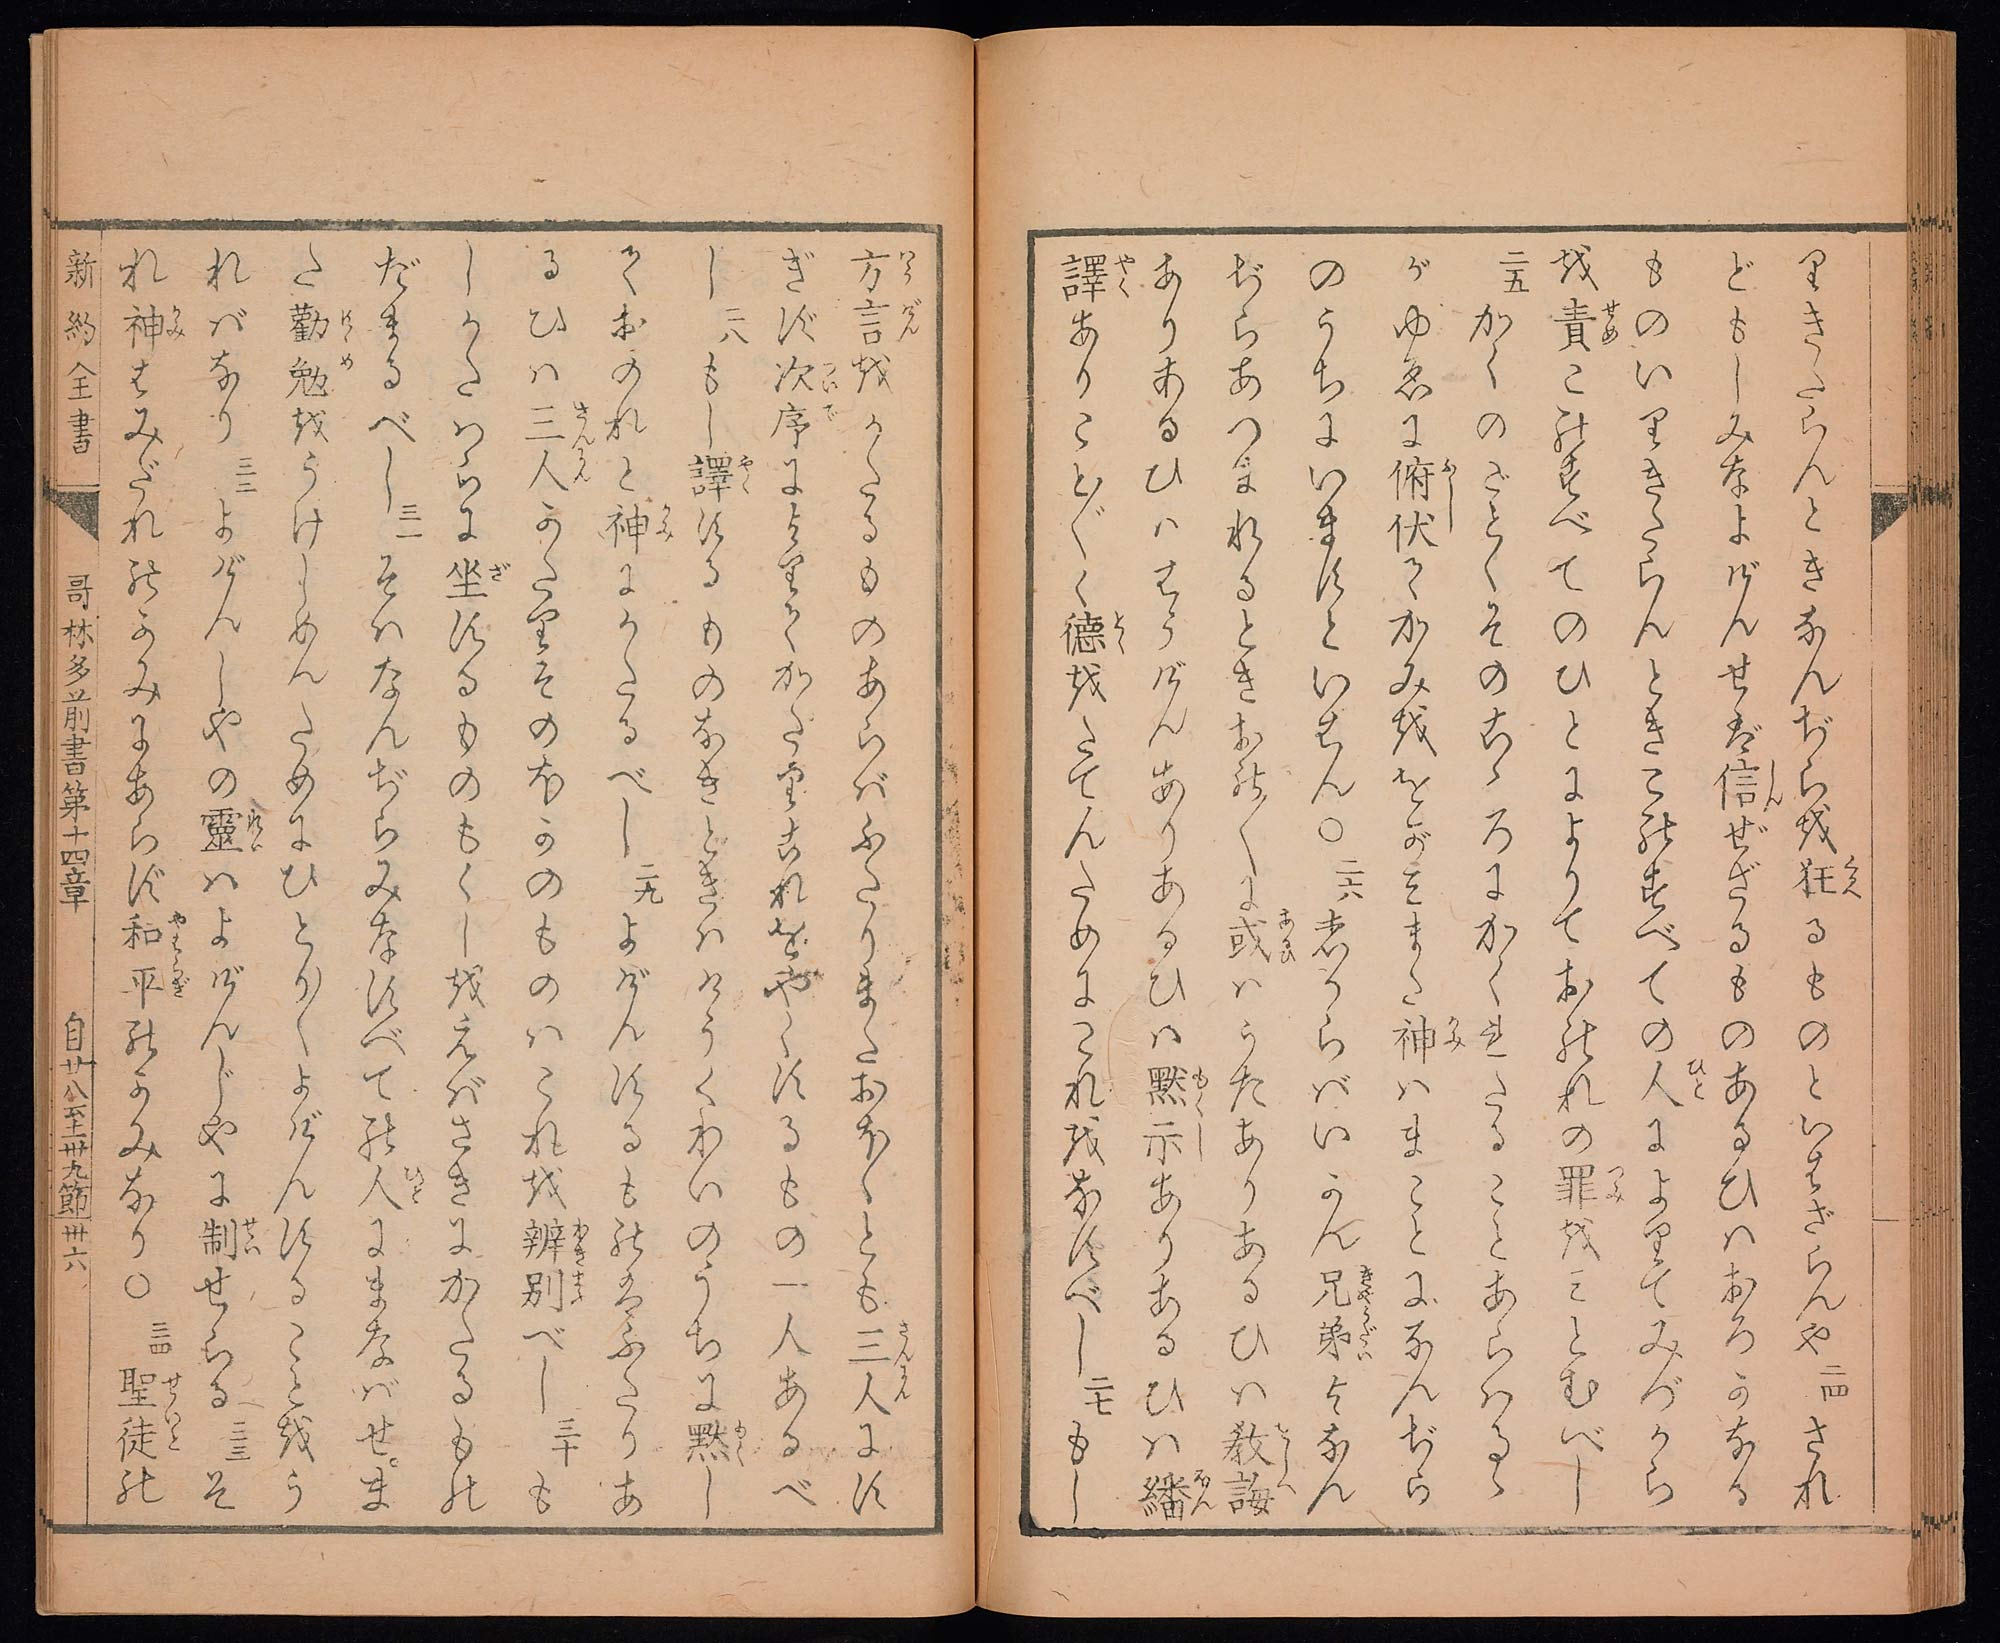 りきたらんときなんぢらを狂るものといはざらんや 二四 され
どもしみなよげんせば信ぜざるものあるひはおろかなる
ものいりきたらんときこのすべての人によりてみづから
を責このすべてのひとによりておのれの罪をみとむべし
二五 かくのごとくそのこゝろにかくれたることあらはるゝ
がゆゑに俯伏てかみををがみまた神はまことになんぢら
のうちにいますといはん〇 二六 しからばいかん兄弟よなん
ぢらあつまれるときおの〳〵に或はうたありあるひは教誨
ありあるひははうげんありあるひは黙示ありあるひは繙
譯ありこと〴〵く徳をたてんためにこれをなすべし 二七 もし
方言をかたるものあらばふたりまたおほくとも三人にす
ぎず次序によりてかたりこれをやくするもの一人あるべ
し 二八 もし譯するものなきときはけうくわいのうちに黙し
ておのれと神にかたるべし 二九 よげんするものはふたりあ
るひは三人かたりそのほかのものはこれを辨別べし 三十 も
しかたはらに坐するものもくしをえばさきにかたるもの
だまるべし 三一 そはなんぢらみなすべての人にまなばせま
た勸勉をうけしめんためにひとり〳〵よげんすることをう
ればなり 三二 よげんしやの靈はよげんじやに制せらる 三三 そ
れ神はみだれのかみにあらず和平のかみなり〇 三四 聖徒の
新約全書 哥林多前書第十四章 自廿八至卅九節 卅六